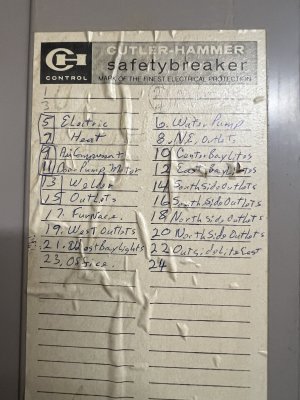 CUTLER-HAMMER
CH
safetybreaker
CONTROL
MARK OF THE FINEST ELECTRICAL PROTECTION
1
3
5 Electric
7 Heat
9
11 Door Pump Motor
13 Welder
15 Outlets
17. Furnace.
19. West Outlets
21. West Bay Lights
23, Office.
6. Water Pump
8. N.E. Outlets
10 Center Bay Lites
12 East Bay Lites
14 South Side Outlets
16 South Side Outlets
18 North Side Outlets
20 North Side Outlets
22 Outside Lite East
24